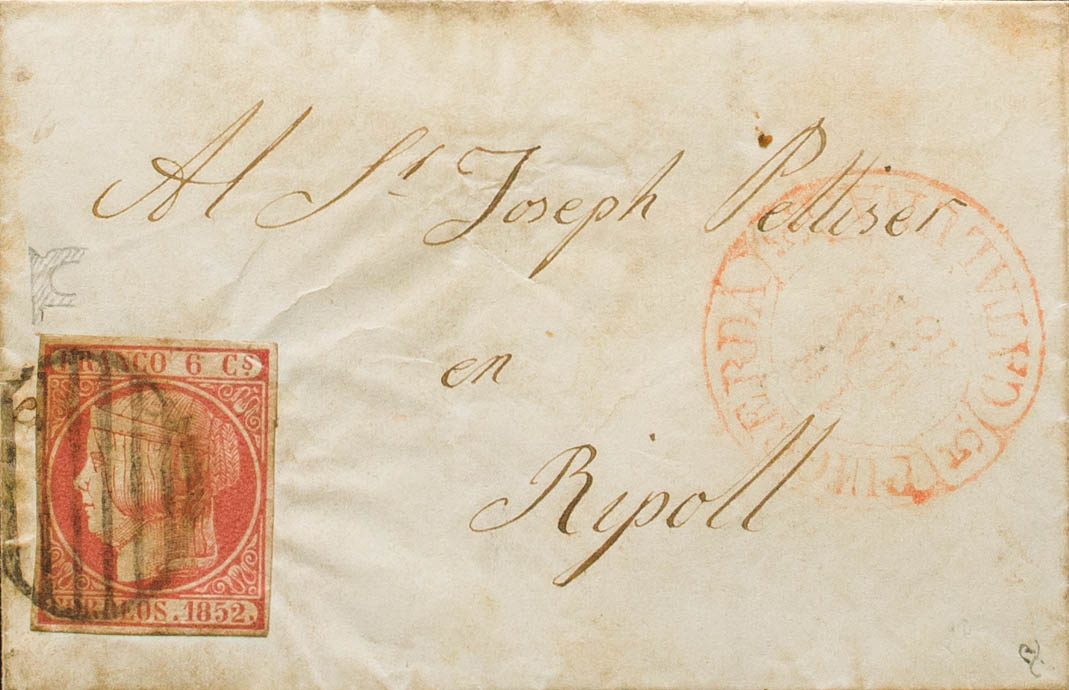 Al Sr. Joseph Pelliser
en
Ripoll
FRANCO 6 Cs
CORREOS. 1852.
CATALUÑA